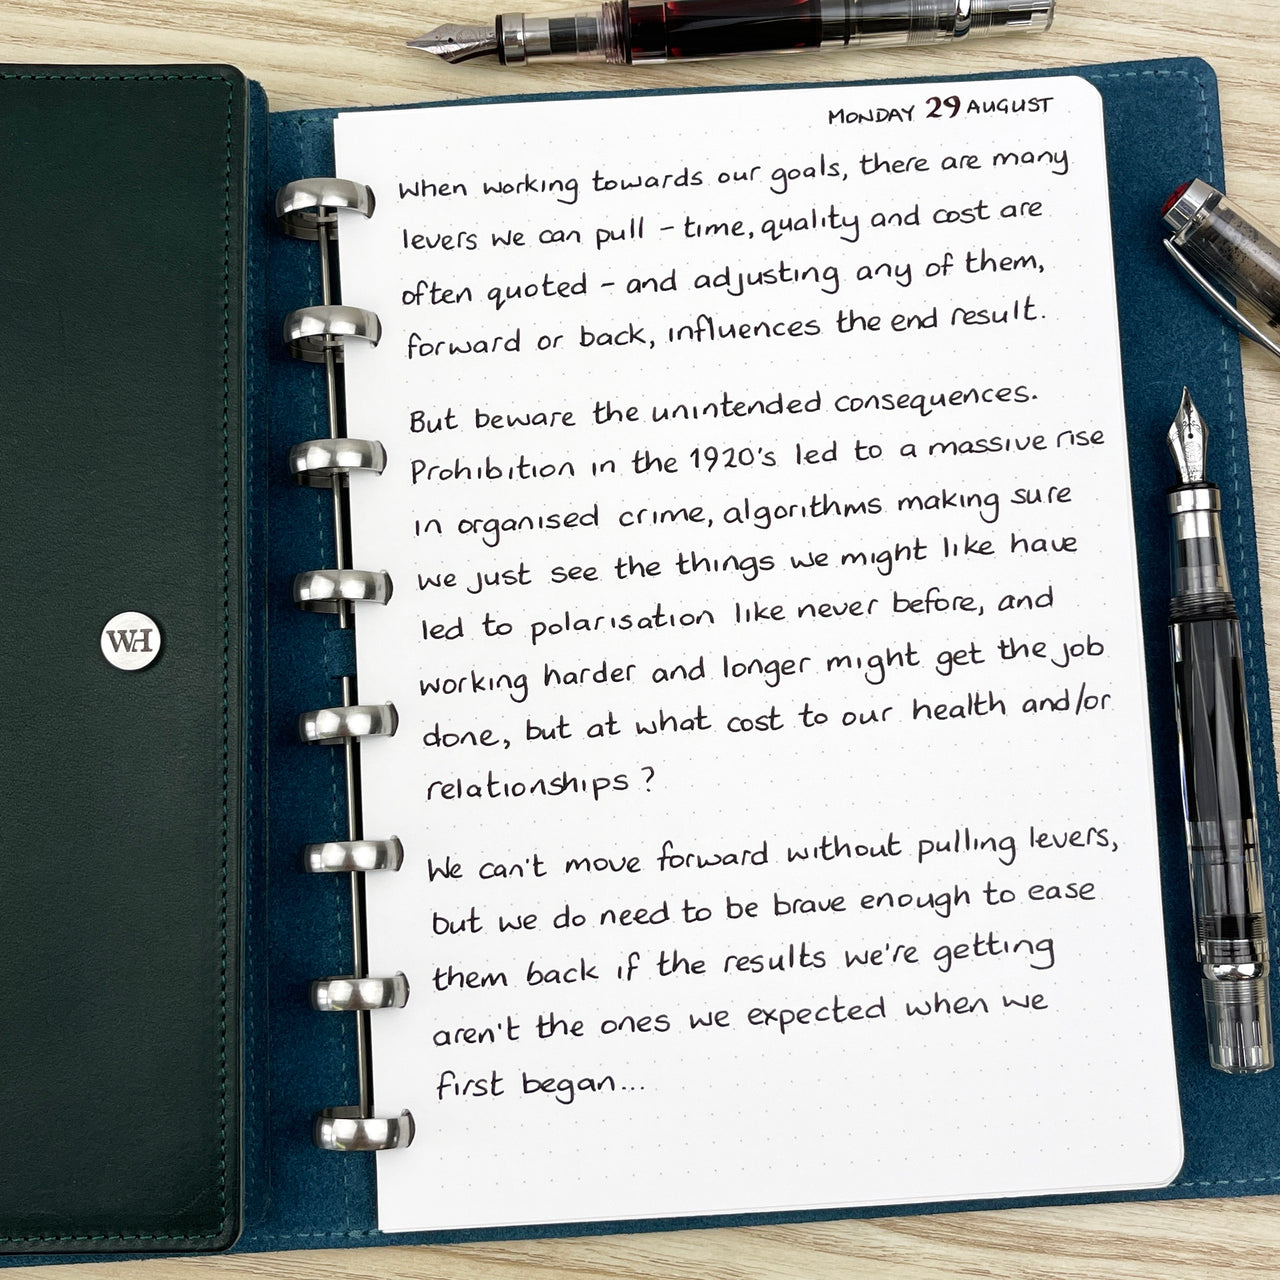 MONDAY 29 AUGUST
When working towards our goals, there are many
levers we can pull – time, quality and cost are
often quoted – and adjusting any of them,
forward or back, influences the end result.
But beware the unintended consequences.
Prohibition in the 1920's led to a massive rise
in organised crime, algorithms making sure
we just see the things we might like have
led to polarisation like never before, and
working harder and longer might get the job
done, but at what cost to our health and/or
relationships?
We can't move forward without pulling levers,
but we do need to be brave enough to ease
them back if the results we're getting
aren't the ones we expected when we
first began...
WH